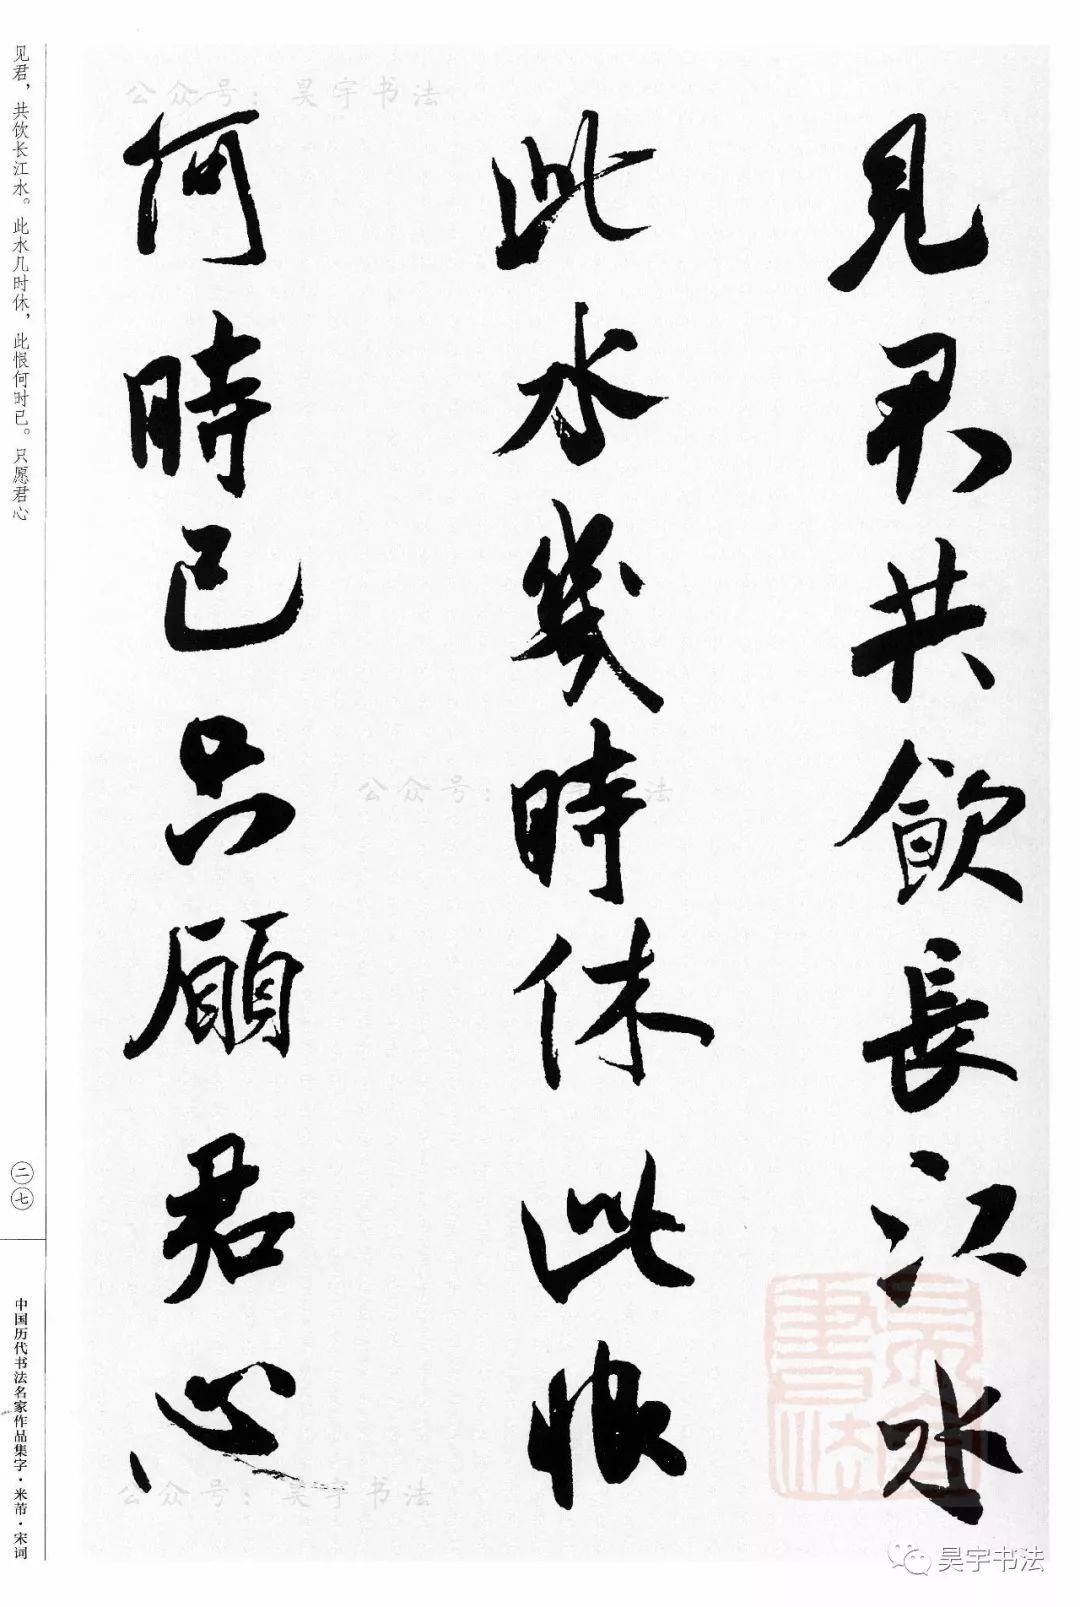 見君共飲長江水
此水幾時休此恨
何時已只願君心
见君，共饮长江水。此水几时休，此恨何时已。只愿君心
二七
中国历代书法名家作品集字·米芾·宋词
公众号：昊宇书法
公众号：昊宇书法
公众号：昊宇书法
昊宇書法
昊宇书法